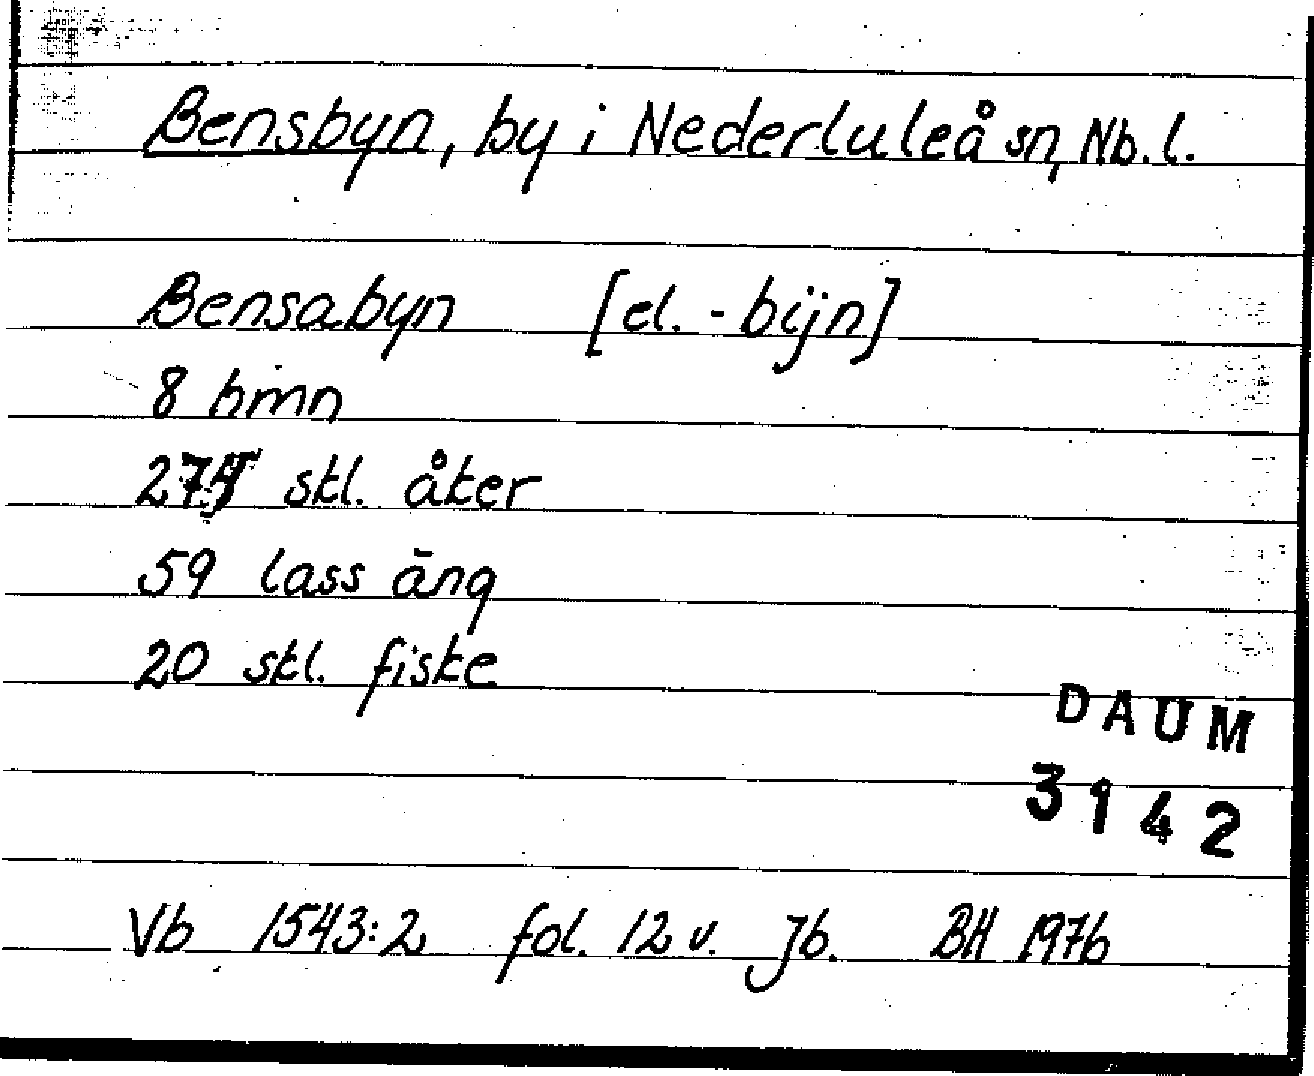 Bensbyn, by i Nederluleå sn, Nb. l.
Bensabyn [el. -bijn]
8 bmn
skl. åker
59 lass äng
20 skl. fiske
DAUM
3142
Vb 1543:2 fol. 12 v. Jb. BH 1976